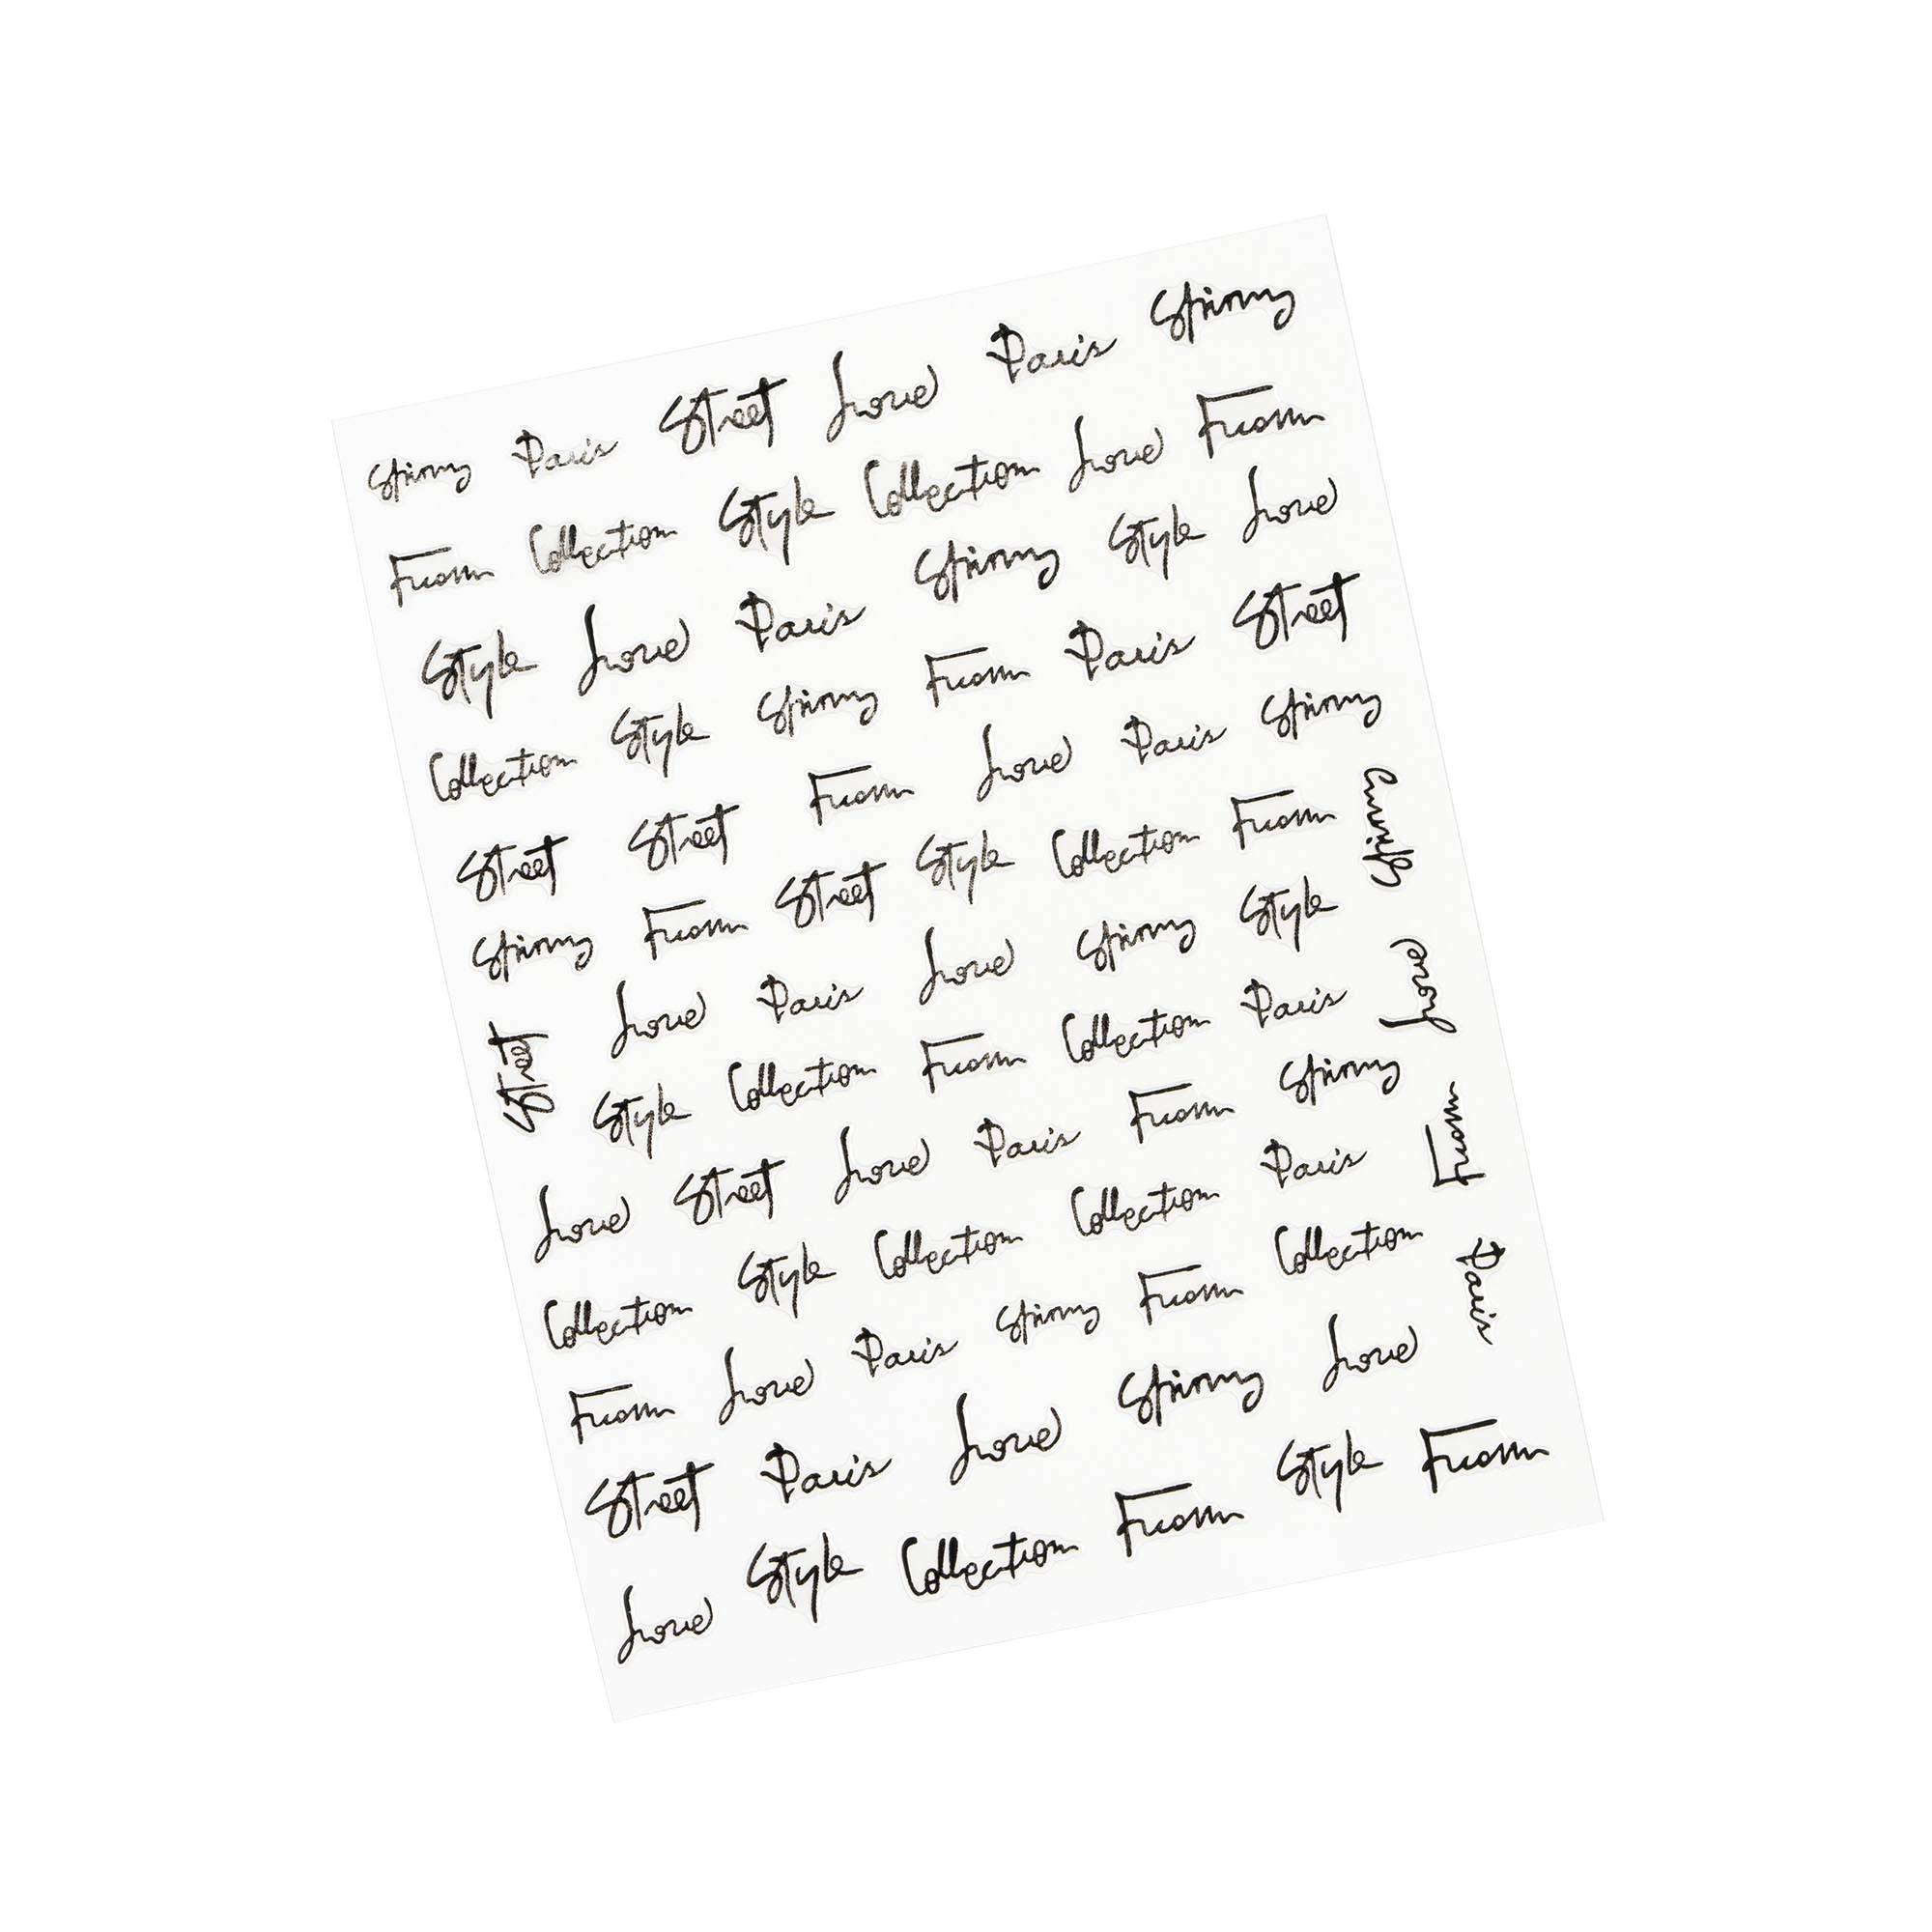 Spring Paris Street Love Paris Spring
From Collection Style Collection Love From
Style Love Paris Spring Style Love
Collection Style Spring From Paris Street
Street Street From Love Paris Spring
Spring From Street Style Collection From
Spring
Street
Love Paris Love Spring Style
Love
Style Collection From Collection Paris
Love Street Love Paris From Spring
From
Collection Style Collection Collection Paris
From Love Paris Spring From Collection
Paris
Street Paris Love Spring Love
Love Style Collection From Style From